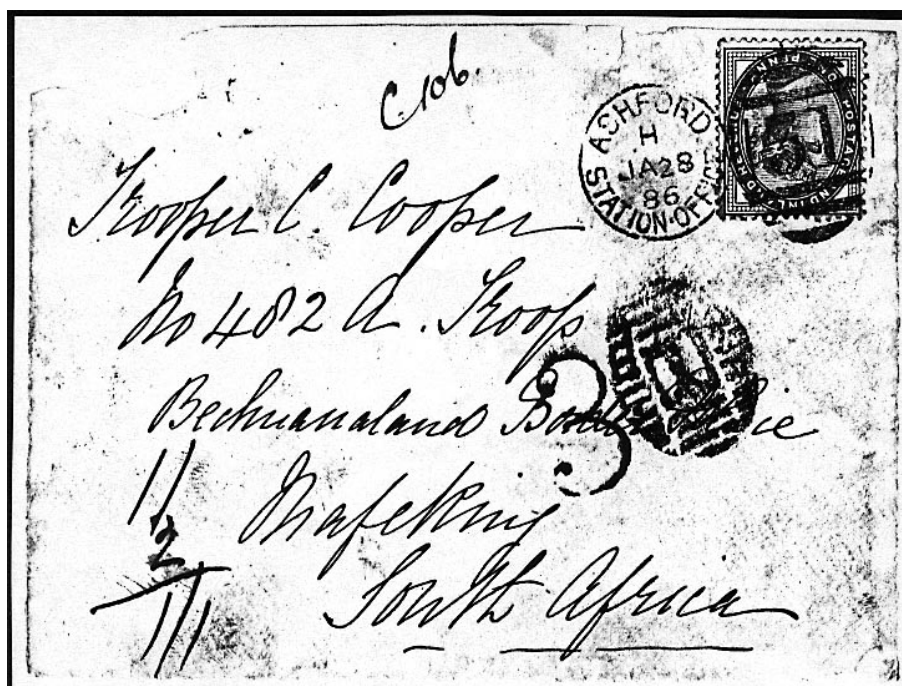 C 106.
ASHFORD
H
JA 28
86
STATION-OFFICE
Trooper C. Cooper
No 482 A. Troop
Bechuanaland Border Police
Mafeking
South Africa
3
11
2
1/1